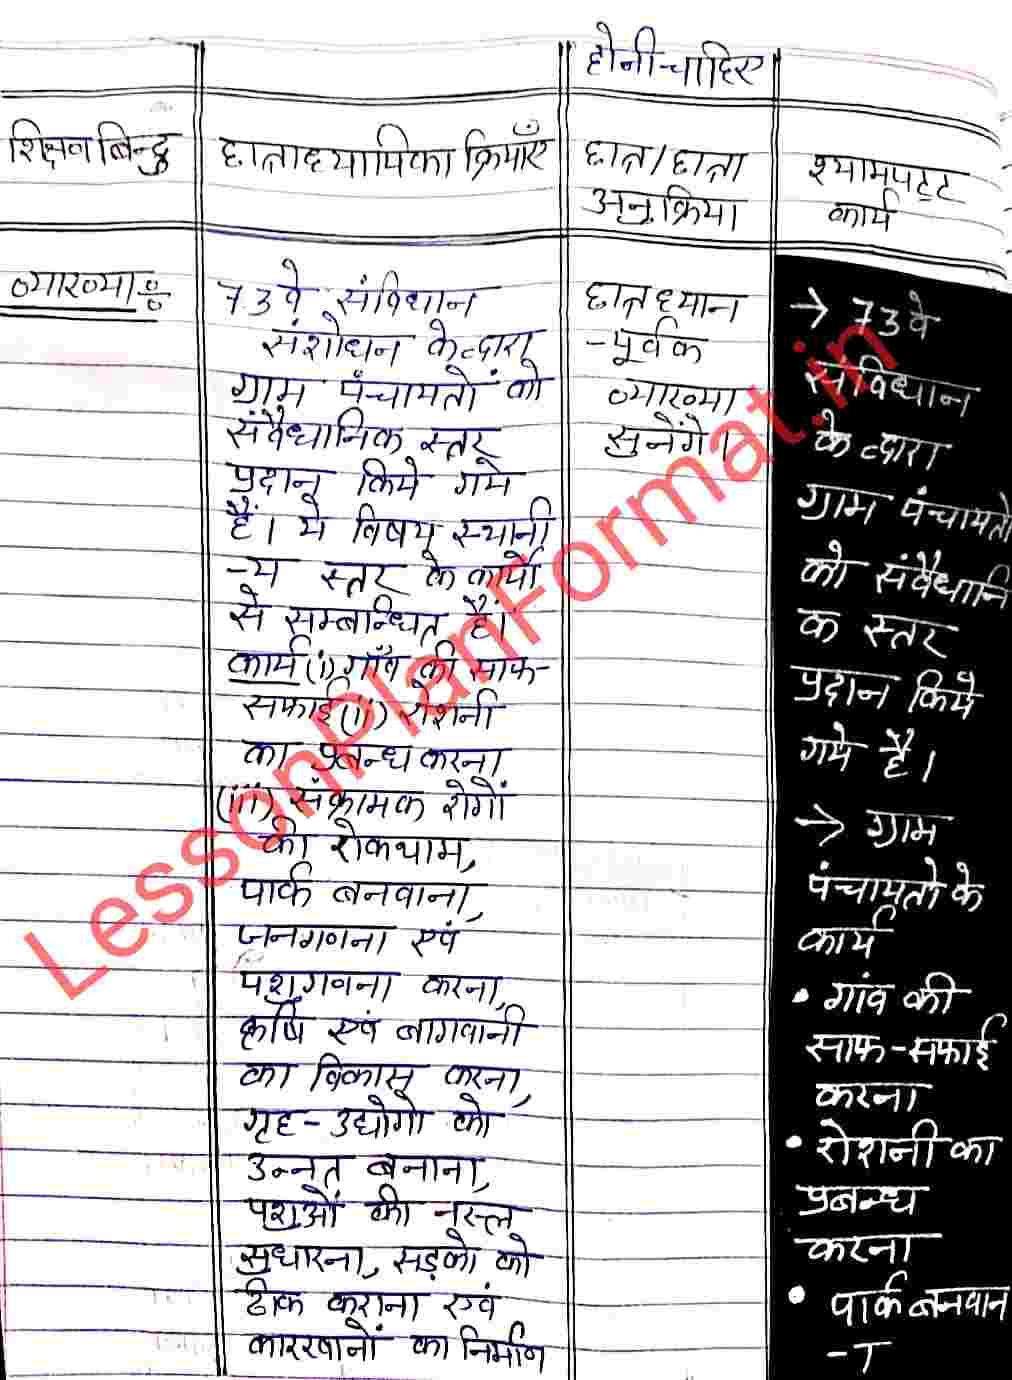 होनी चाहिए
शिक्षण बिन्दु
छात्राध्यापिका क्रियाएँ
छात्र/छात्रा
अनुक्रिया
श्यामपट्ट
कार्य
व्याख्या :-
73वे संविधान
संशोधन के द्वारा
ग्राम पंचायतों को
संवैधानिक स्तर
प्रदान किये गये
हैं। ये विषय स्थानी
-य स्तर के कार्यो
से सम्बन्धित हैं।
कार्य (i) गाँव की साफ-
सफाई (ii) रोशनी
का प्रबन्ध करना
(iii) संक्रामक रोगों
की रोकथाम,
पार्क बनवाना,
जनगणना एवं
पशुगणना करना,
कृषि एवं बागवानी
का विकास करना,
गृह-उद्योगो को
उन्नत बनाना,
पशुओं की नस्ल
सुधारना, सड़को को
ठीक कराना एवं
कारखानों का निर्माण
छात्र ध्यान
-पूर्वक
व्याख्या
सुनेंगे।
→ 73वे
संविधान
के द्वारा
ग्राम पंचायतो
को संवैधानि
क स्तर
प्रदान किये
गये है।
→ ग्राम
पंचायतो के
कार्य
• गांव की
साफ-सफाई
करना
• रोशनी का
प्रबन्ध
करना
• पार्क बनवान
-ा
LessonPlanFormat.in